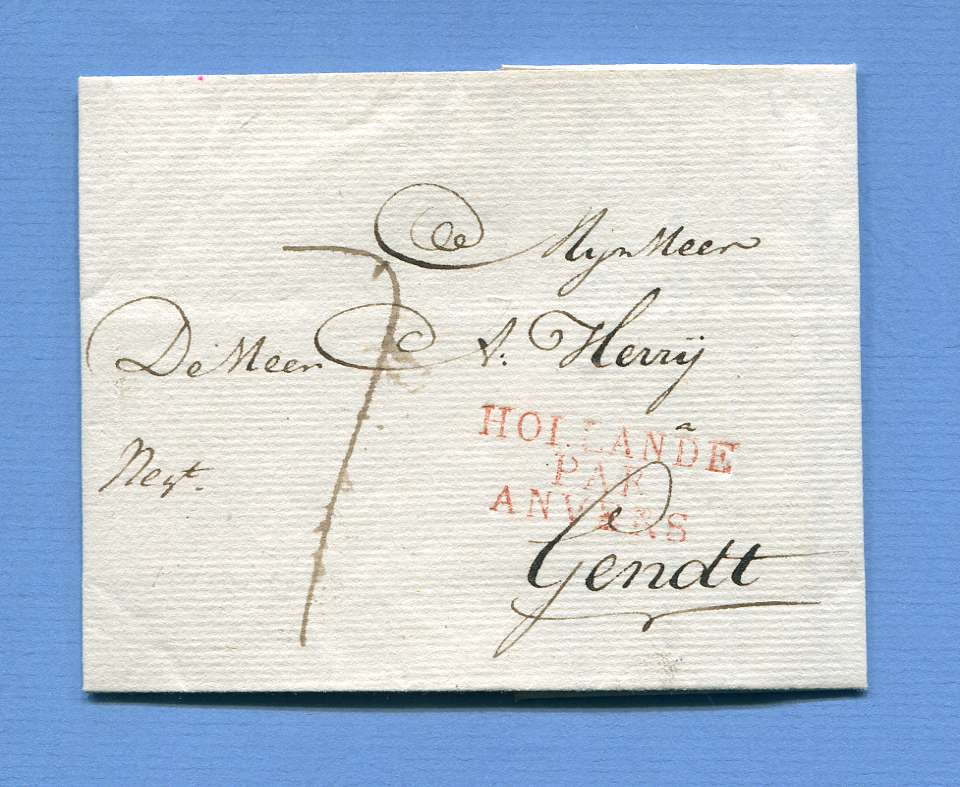 Mijn Heer
De Heer A: Herrij
Negt.
HOLLANDE
PAR
ANVERS
a
Gendt
7